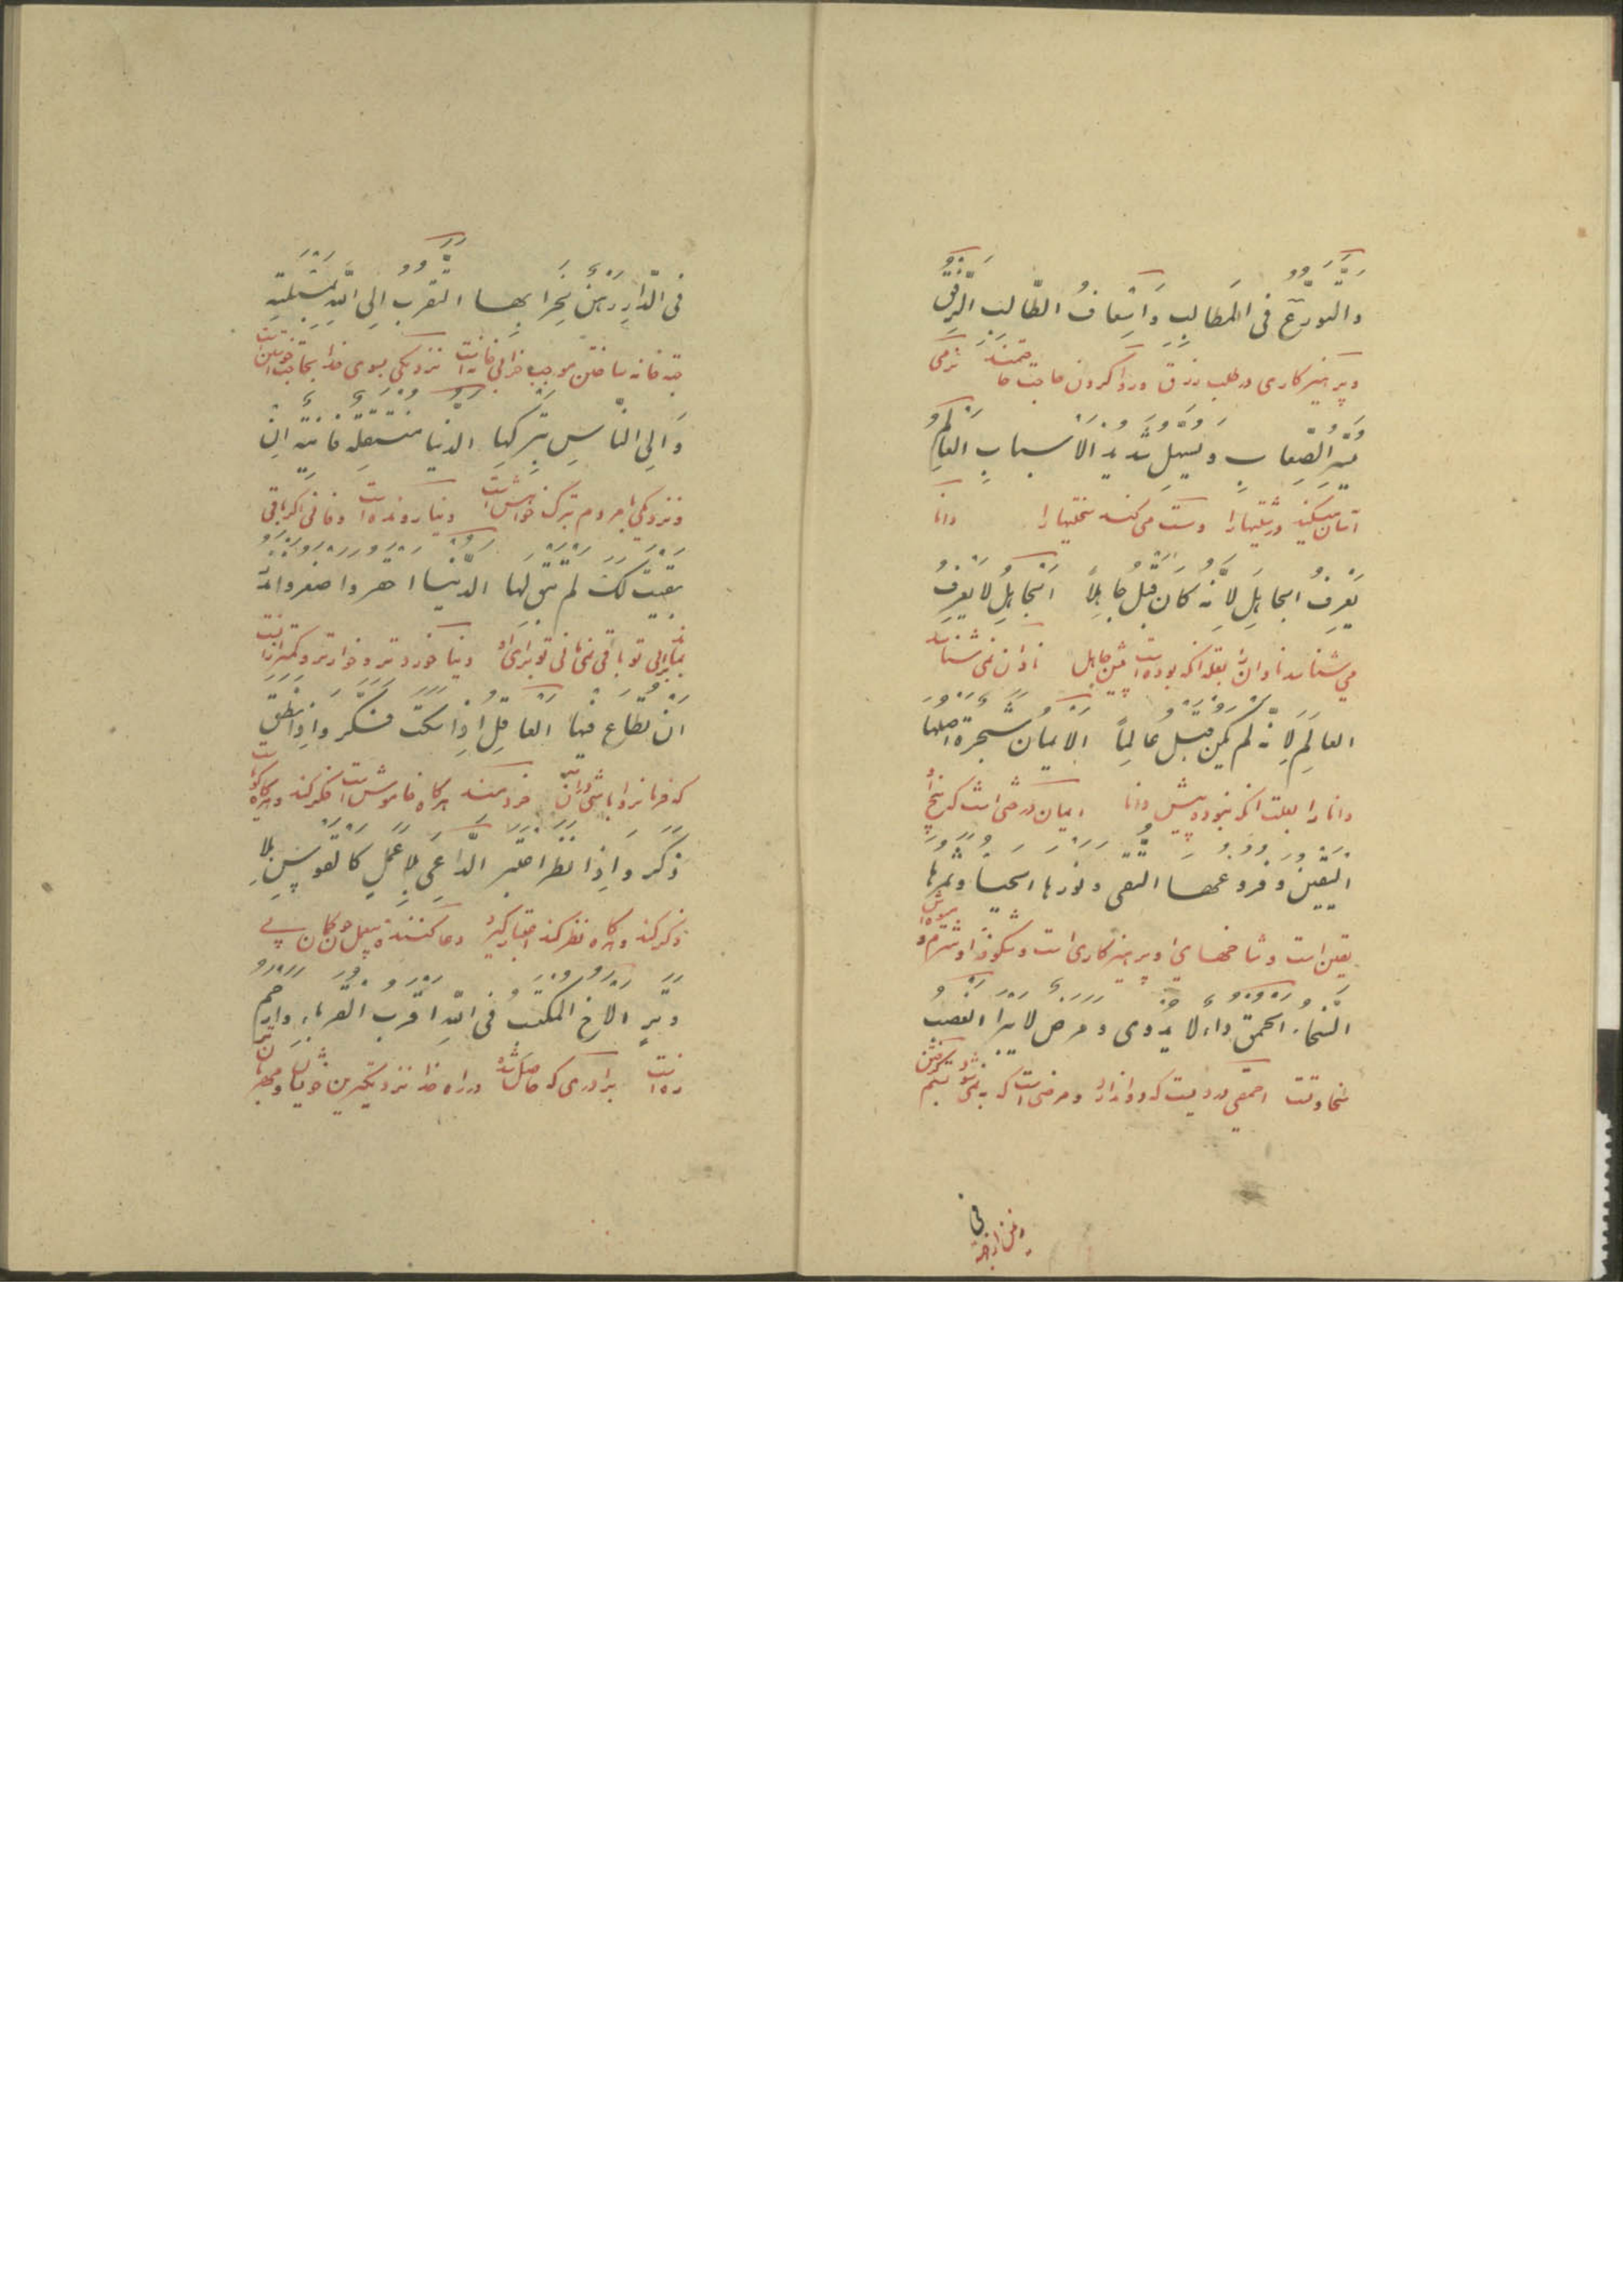 والتورّع فی المطالب وَاسعافُ الطّالب الرّفقُ
وپرهیزکاری در طلب رزق و روا کردن حاجت حاجتمند نرمی
یُیَسّرُ الصّعاب وَ یُسَهّلُ شدید الاسباب العالمُ
آسان میکند درشتیها را و سست می کند سختیها را دانا
یَعرِفُ الجاهلَ لِاَنّهُ کانَ قَبلُ جاهِلاً الجاهِلُ لا یَعرِفُ
می شناسد نادان را بعلة آنکه بوده است پیش جاهل نادان نمی شناسد
العالِمَ لِانّه لم یکن قبل عالِماً الایمان شجرة اصلها
دانا را بعلت آنکه نبود پیش دانا ایمان درختی است که بیخ او
الیقین و فروعها التقی و نورها الحیا و ثمرها
یقین است و شاخهای او پرهیزکاری است و شکوفه او شرم و میوه اش
السّخاء الحمق داء لا یداوی و مرض لا یبرا الغصب
سخاوتست احمقی دردیست که دوا ندارد و مرضی است که به نمی شود بستم گرفتن
فی
فی الدّارِ رهن لخرابها التقرّب الی اللّه بمسئلته
خانه ساختن موجب خرابی خانه است نزدیکی بسوی خدا بحاجت خواستن است
وَ الی النّاسِ بترکها الدّنیا منتقلة فانیة ان
و نزدیکی بمردم بترک خواهش است دنیا رونده است و فانی اگر باقی
بقیت لک لم تبق لها الدّنیا احقر و اصغر و انذر
بماند برای تو باقی نمی مانی تو برای او دنیا خوردتر و خوارتر و کمتر از آنست
ان تطاع فیها العاقل اذا سکت فکّر و اذا نطق
که فرمانبردار باشی در آن خردمند هرگاه خاموش است فکر کند و هرگاه گویاست
ذکر و اذا نظر اعتبر الدّاعی بلا عمل کالقوس بلا
ذکر کند و هرگاه نظر کند اعتبار گیرد دعا کننده بیعمل چون کمان بی
وتر الاخ المکتسب فی اللّه اقرب القرباء و ارحم
زه است برادری که حاصل شده در راه خدا نزدیکترین خویشان و مهربان تر